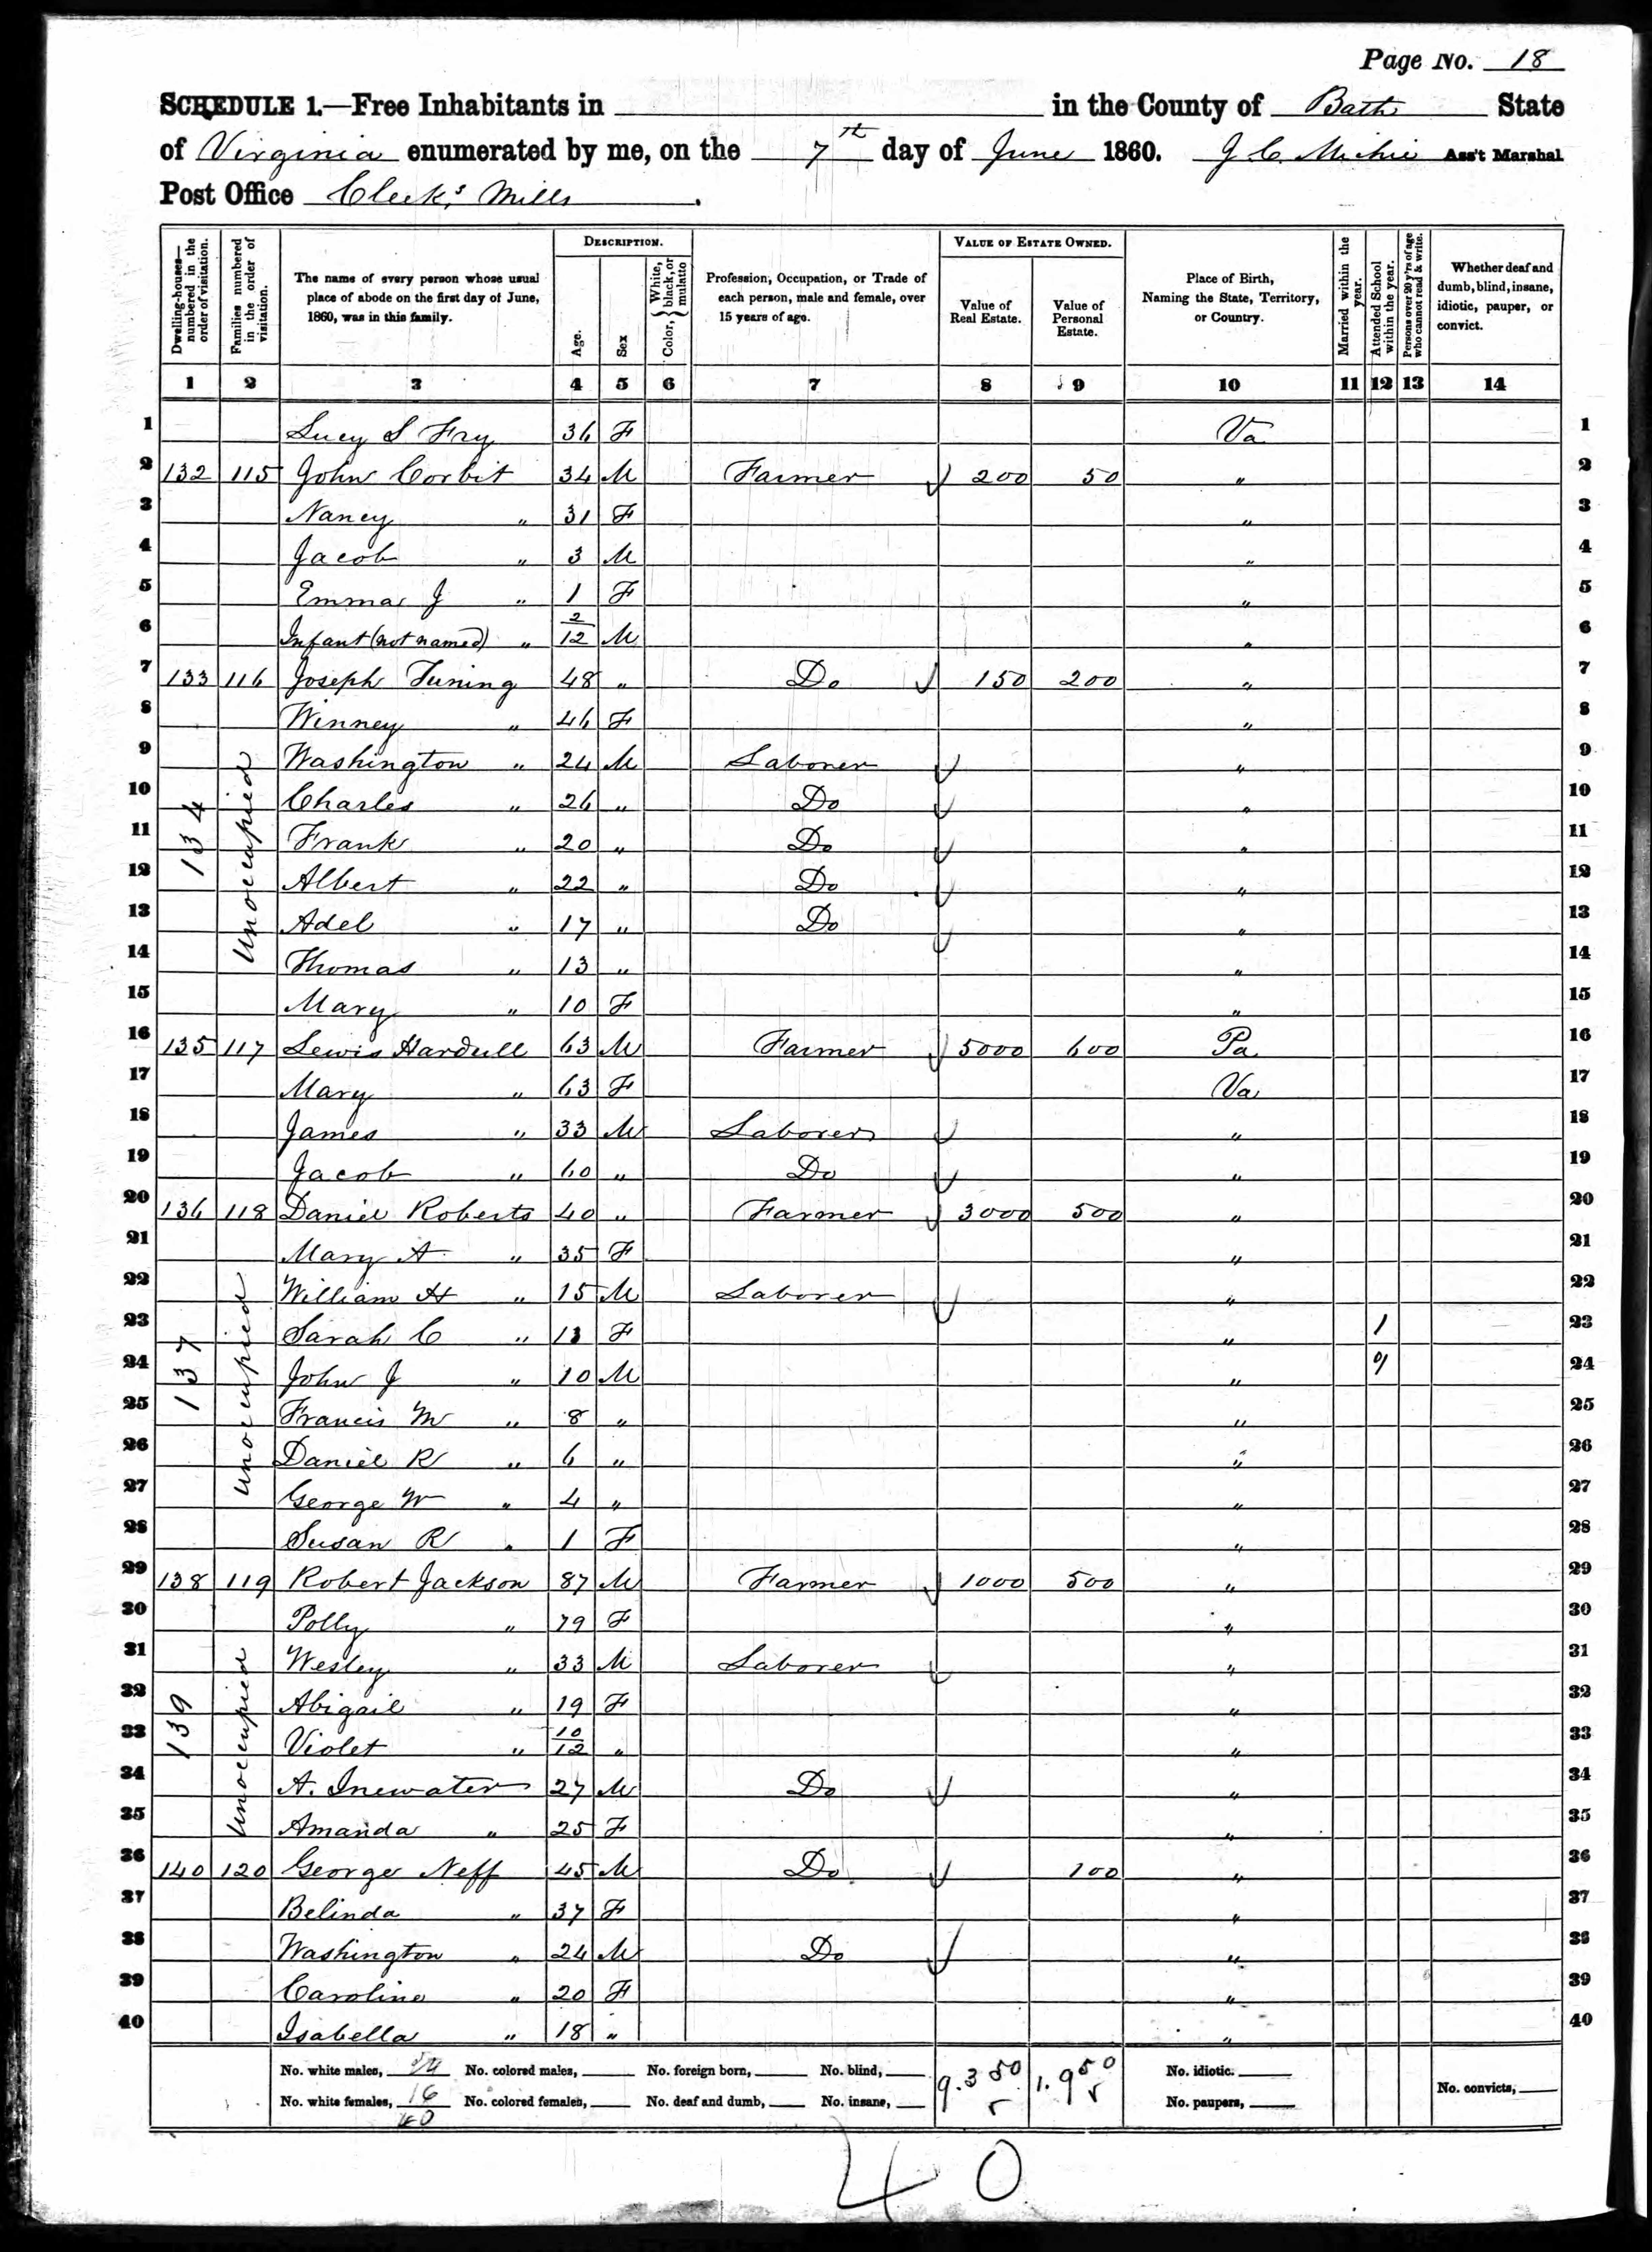 Page No. 18
SCHEDULE 1.—Free Inhabitants in in the County of Bath State
of Virginia enumerated by me, on the 7th day of June 1860. J. C. Michie Ass't Marshal
Post Office Cleek's Mills.
Dwelling-houses—numbered in the order of visitation.
Families numbered in the order of visitation.
The name of every person whose usual place of abode on the first day of June, 1860, was in this family.
DESCRIPTION.
Age.
Sex
Color, { White, black, or mulatto
Profession, Occupation, or Trade of each person, male and female, over 15 years of age.
VALUE OF ESTATE OWNED.
Value of Real Estate.
Value of Personal Estate.
Place of Birth, Naming the State, Territory, or Country.
Married within the year.
Attended School within the year.
Persons over 20 y'rs of age who cannot read & write.
Whether deaf and dumb, blind, insane, idiotic, pauper, or convict.
1 2 3 4 5 6 7 8 9 10 11 12 13 14
1 Lucy S Fry 36 F Va 1
2 132 115 John Corbit 34 M Farmer 200 50 " 2
3 Nancy " 31 F " 3
4 Jacob " 3 M " 4
5 Emma J " 1 F " 5
6 Infant (not named) " 2/12 M " 6
7 133 116 Joseph Tuning 48 " Do 150 200 " 7
8 Winney " 46 F " 8
9 Washington " 24 M Laborer " 9
10 Charles " 26 " Do " 10
11 Frank " 20 " Do " 11
12 Albert " 22 " Do " 12
13 Adel " 17 " Do " 13
14 Thomas " 13 " " 14
15 Mary " 10 F " 15
134 Unoccupied
16 135 117 Lewis Hardull 63 M Farmer 5000 600 Pa 16
17 Mary " 63 F Va 17
18 James " 33 M Laborer " 18
19 Jacob " 60 " Do " 19
20 136 118 Daniel Roberts 40 " Farmer 3000 500 " 20
21 Mary A " 35 F " 21
22 William H " 15 M Laborer " 22
23 Sarah C " 13 F " 1 23
24 John J " 10 M " 24
25 Francis M " 8 " " 25
26 Daniel R " 6 " " 26
27 George W " 4 " " 27
28 Susan R " 1 F " 28
137 Unoccupied
29 138 119 Robert Jackson 87 M Farmer 1000 500 " 29
30 Polly " 79 F " 30
31 Wesley " 33 M Laborer " 31
32 Abigail " 19 F " 32
33 Violet " 10/12 " " 33
34 A. Inewater 27 M Do " 34
35 Amanda " 25 F " 35
139 Unoccupied
36 140 120 George Neff 45 M Do 100 " 36
37 Belinda " 37 F " 37
38 Washington " 24 M Do " 38
39 Caroline " 20 F " 39
40 Isabella " 18 " " 40
No. white males, 24 No. colored males, No. foreign born, No. blind, 9.350 1.950 No. idiotic.
No. white females, 16 No. colored females, No. deaf and dumb, No. insane, No. paupers, No. convicts,
40
40